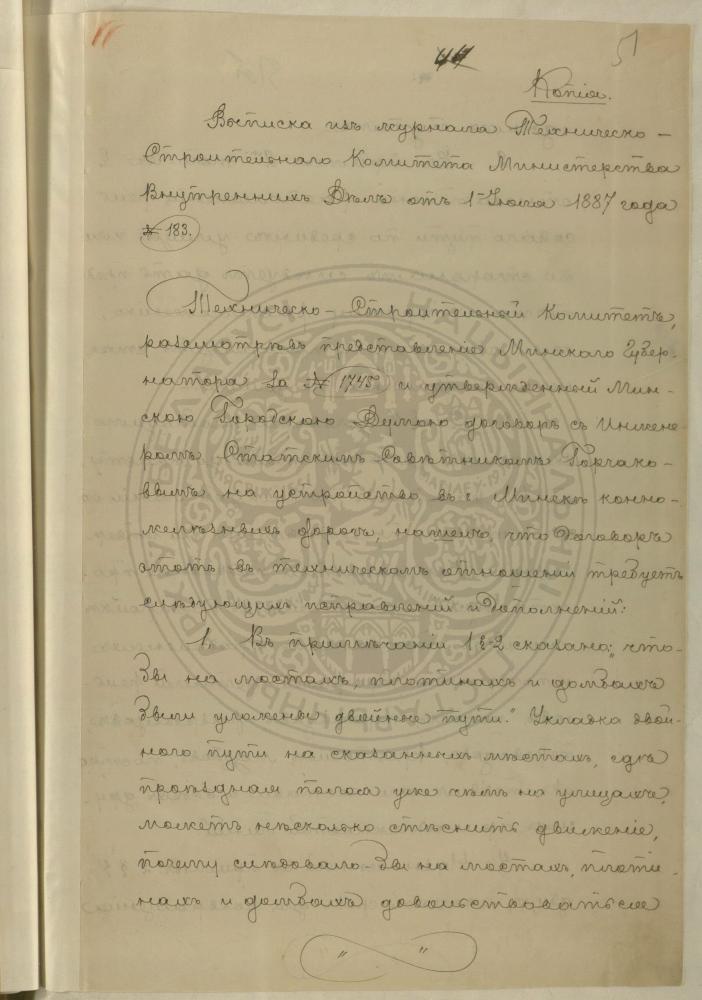 51
Копія.
Выписка изъ журнала Техническо-
Строительнаго Комитета Министерства
Внутреннихъ Дѣлъ отъ 1-Іюля 1887 года
№ 183.
Техническо-Строительный Комитетъ,
разсмотрѣвъ представленіе Минскаго Губер-
натора за № 1745 и утвержденный Мин-
скою Городскою Думою договоръ съ Инжене-
ромъ Статскимъ Совѣтникомъ Горчако-
вымъ на устройство въ г. Минскѣ конно-
желѣзныхъ дорогъ, нашелъ, что договоръ
этотъ въ техническомъ отношеніи требуетъ
слѣдующихъ исправленій и дополненій:
1. Въ примѣчаніи 1 §-2 сказано: „что-
бы на мостахъ, плотинахъ и дамбахъ
были уложены двойные пути." Укладка двой-
ного пути на сказанныхъ мѣстахъ, гдѣ
проѣздная полоса уже чѣмъ на улицахъ,
можетъ нѣсколько стѣснить движеніе,
почему слѣдовало-бы на мостахъ, плоти-
нахъ и дамбахъ довольствоваться